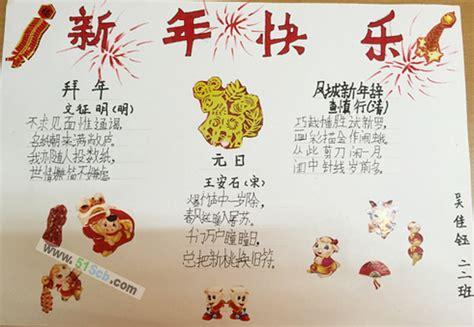 新年快乐
拜年
文征明(明)
不求见面惟通谒
名纸朝来满敝庐
我亦随人投数纸
世情嫌简不嫌虚
元日
王安石(宋)
爆竹声中一岁除
春风送暖入屠苏
千门万户曈曈日
总把新桃换旧符
凤城新年辞
查慎行(清)
巧裁幡胜试新罗
画彩描金作闹蛾
从此剪刀闲一月
闺中针线岁前多
吴佳钰
二二班
www.51Scb.com